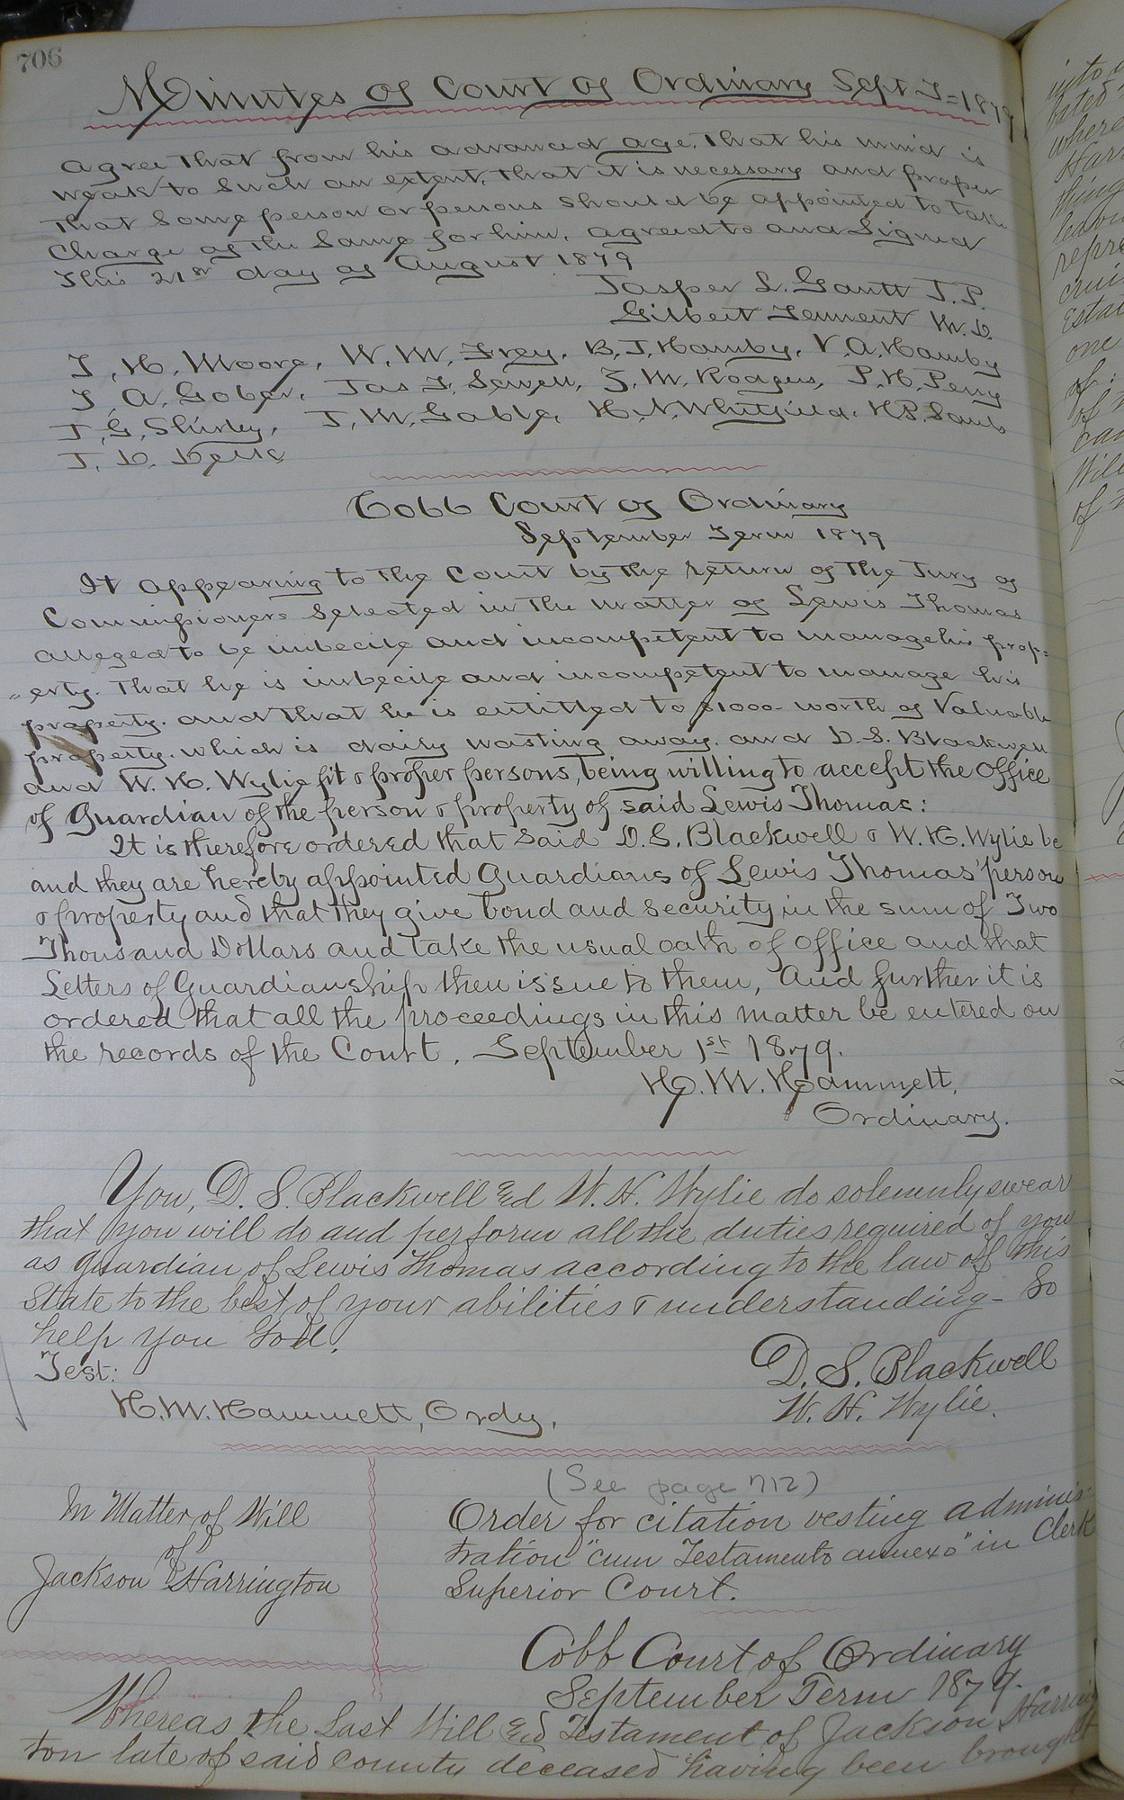 706
Minutes of Court of Ordinary Sept T=1879
agree that from his advanced age, that his mind is
weak to such an extent, that it is necessary and proper
that some person or persons should be appointed to take
charge of the same for him, agreed to and signed
This 21st day of August 1879
Jasper L. Gantt J.P.
Gilbert Tennent M.D.
J, H, Moore, W. M. Frey, B, J, Hamby, V, A. Hamby
J, A, Gober, Jas J. Sewell, Z, M. Rodgers, P. H, Perry
J, G, Shirley, J, M. Gable, H. N. Whitfield, H.P.
J. D.
Cobb Court of Ordinary
September Term 1879
It appearing to the Court by the return of the Jury of
Commissioners selected in the matter of Lewis Thomas
alleged to be imbecile and incompetent to manage his prop=
"erty. That he is imbecile and incompetent to manage his
property. and that he is entitled to $1000- worth of Valuable
property. which is daily wasting away. and D. S. Blackwell
and W. H. Wylie fit & proper persons, being willing to accept the Office
of Guardian of the person & property of said Lewis Thomas:
It is therefore ordered that said D. S. Blackwell & W. H. Wylie be
and they are hereby appointed Guardians of Lewis Thomas' person
& property and that they give bond and security in the sum of Two
Thousand Dollars and take the usual oath of office and that
Letters of Guardianship then issue to them, And further it is
ordered that all the proceedings in this matter be entered on
the records of the Court. September 1st 1879.
H. M. Hammett,
Ordinary.
You, D. S. Blackwell and W. H. Wylie do solemnly swear
that you will do and perform all the duties required of you
as guardian of Lewis Thomas according to the law of this
State to the best of your abilities & understanding- So
help you God.
Test:
D. S. Blackwell
H. M. Hammett, Ordy.
W. H. Wylie.
(See page 712)
In Matter of Will
of
Jackson Harrington
Order for citation vesting adminis-
tration "cum Testamento annexo" in Clerk
Superior Court.
Cobb Court of Ordinary
September Term 1879.
Whereas the Last Will and Testament of Jackson Harring
ton late of said county deceased having been brought